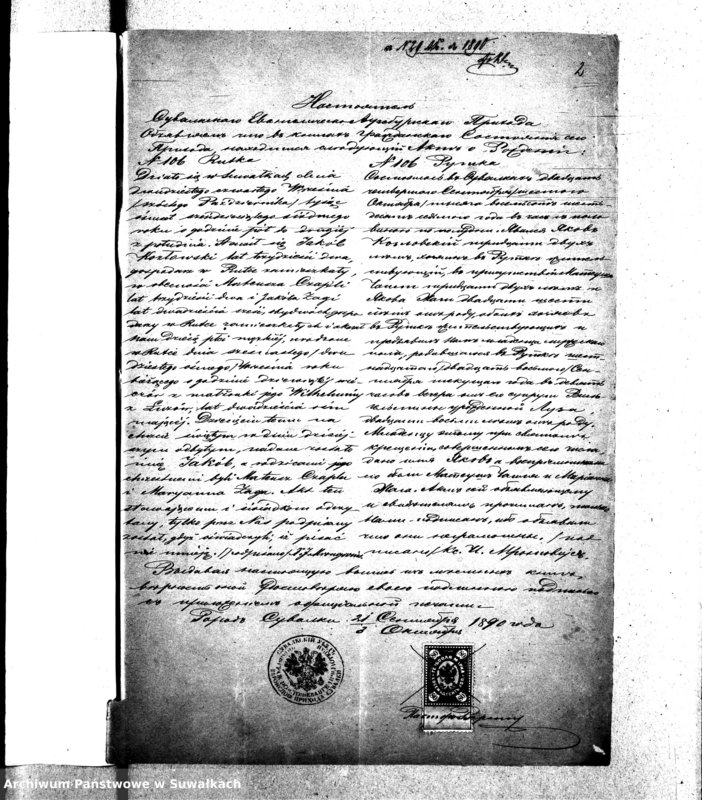 2
Настоятель
Сувалкскаго Евангелическо Аугсбургскаго Прихода
Объявляетъ что въ книгахъ Гражданскаго Состоянія сего
Прихода находится слѣдующій Актъ о Рожденіи:
N 106 Rutka
Działo się w Suwałkach dnia
dwudziestego czwartego Września
/szóstego Października/ tysiąc
ośmset sześćdziesiątego siódmego
roku o godzinie pół do drugiéj
z południa. Stawił się Jakób
Kozłowski lat trzydzieści dwa,
gospodarz w Rutce zamieszkały,
w obecności Mateusza Czapli
lat trzydzieści dwa i Jakóba Żagi
lat dwadzieścia sześć,
w Rutce zamieszkałych i okazał
nam Dziecię płci męzkiéj, urodzone
w Rutce dnia szesnastego /dwu
dziestego ósmego/ Września roku
bieżącego o godzinie dziewiątéj wie
czór z małżonki jego Wilhelminy
z Lixów, lat dwadzieścia ośm
mającéj. Dziecięciu temu na
chrzcie świętym w dniu dzisiéj
szym odbytym, nadane zostało
imię Jakób, a rodzicami jego
chrzestnemi byli Mateusz Czapla
i Maryanna Żaga. Akt ten
stawającemu i świadkom odczy
tany, tylko przez Nas podpisany
został, gdyż oświadczyli, iż pisać
nie umieją.
N 106 Рутка
Состоялось въ Сувалкахъ двадцать
четвертаго Сентября /шестого
Октября/ тысяча восемьсотъ шесть
десятъ седьмого года въ часъ съ поло
виною по полудни. Явился Яковъ
Козловскій тридцати двухъ
лѣтъ, хозяинъ въ Руткѣ житель
ствующій, въ присутствіи Матеуша
Чапли тридцати двухъ лѣтъ и
Якова Жаги двадцати шести
въ Руткѣ жительствующихъ и
предъявилъ Намъ младенца мужескаго
пола, родившагося въ Руткѣ шест
надцатаго /двадцать восьмого/ Сен
тября текущаго года въ девять
часовъ вечера отъ его супруги Виль
гельмины урожденной
двадцати восьми лѣтъ отъ роду.
Младенцу этому при святомъ
крещеніи, совершенномъ сего числа
дано имя Яковъ, а воспріемниками
его были Матеушъ Чапля и Маріанна
Жага. Актъ сей объявляющему
и свидѣтелямъ прочитанъ,
Нами подписанъ, ибо объявили
что они неграмотны. /под
писано/
Выдавая настоящую выпись изъ метрическихъ книгъ,
достовѣряю своею подписью
съ приложеніемъ оффиціальной печати.
Городъ Сувалки 21 Сентября 1890 года
3 Октября
Пасторъ
Archiwum Państwowe w Suwałkach